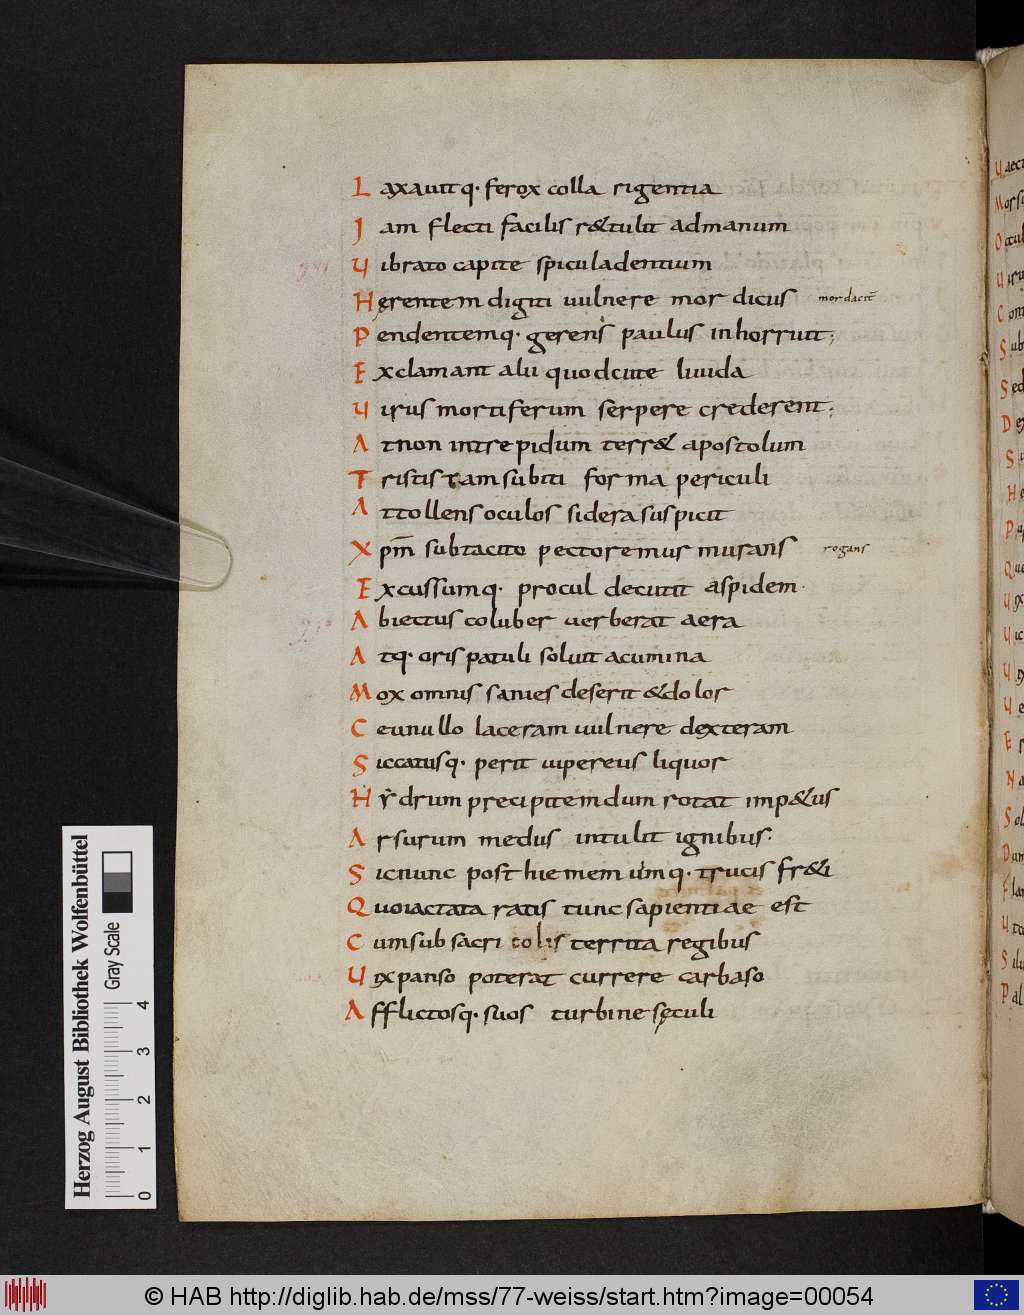 Laxauitq· ferox colla rigentia
Iam flecti facilis r&tulit admanum
Uibrato capite spiculadentium
Hęrentem digiti uulnere mordicus mordacit̄
Pendentemq· gerens paulus inhorruit;
Exclamant alii quodcute liuida
Uirus mortiferum serpere crederent;
Atnon intrepidum terr& apostolum
Tristis tamsubiti forma periculi
Attollensoculos siderasuspicit
Xpm̄ subtacito pectoremusmurans rogans
Excussumq· procul decutit aspidem·
Abiectus coluber uerberat aera
Atq· oris patuli soluit acumina
Mox omnis sanies deserit &dolor
Ceunullo laceram uulnere dexteram
Siccatusq· perit uipereus liquor
Hẏdrum precipitem dum rotat imp&us
Arsurum medius intulit ignibus·
Sicnunc post hiemem uimq· trucis fr&i
Quoiactata ratis tunc sapientiae est
Cumsub sacri colis territa regibus
Uixpanso poterat currere carbaso
Afflictosq· suos turbine sęculi
Herzog August Bibliothek Wolfenbüttel
Gray Scale
0 1 2 3 4
© HAB http://diglib.hab.de/mss/77-weiss/start.htm?image=00054